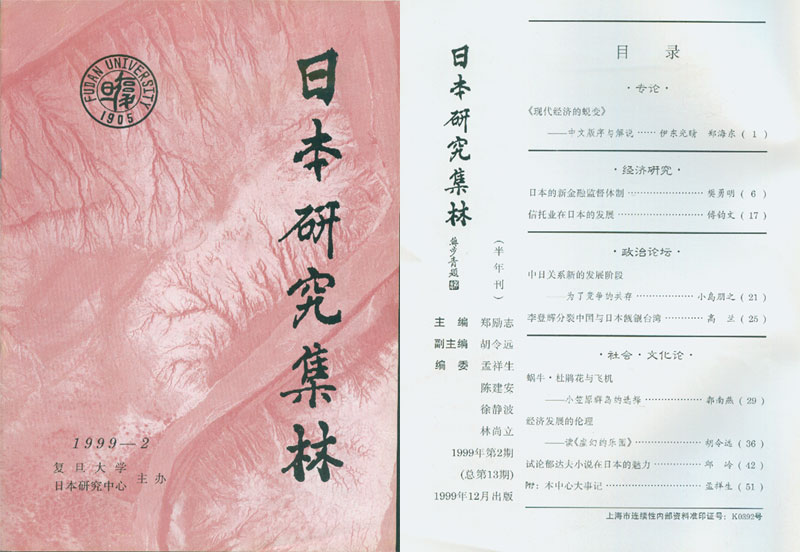 FUDAN UNIVERSITY
1905
日本研究集林
1999—2
复旦大学
日本研究中心
主办
日本研究集林
苏步青题
(半年刊)
主编 郑励志
副主编 胡令远
编委 孟祥生
陈建安
徐静波
林尚立
1999年第2期
(总第13期)
1999年12月出版
目录
·专论·
《现代经济的蜕变》
——中文版序与解说……伊东光晴 郑海东(1)
·经济研究·
日本的新金融监督体制……………………樊勇明(6)
信托业在日本的发展……………………傅钧文(17)
·政治论坛·
中日关系新的发展阶段
——为了竞争的共存………………小岛朋之(21)
李登辉分裂中国与日本觊觎台湾……………高兰(25)
·社会·文化论·
蜗牛·杜鹃花与飞机
——小笠原群岛的选择………………郭南燕(29)
经济发展的伦理
——读《虚幻的乐园》………………胡令远(36)
试论郁达夫小说在日本的魅力………………邱岭(42)
附:本中心大事记……………………孟祥生(51)
上海市连续性内部资料准印证号:K0392号